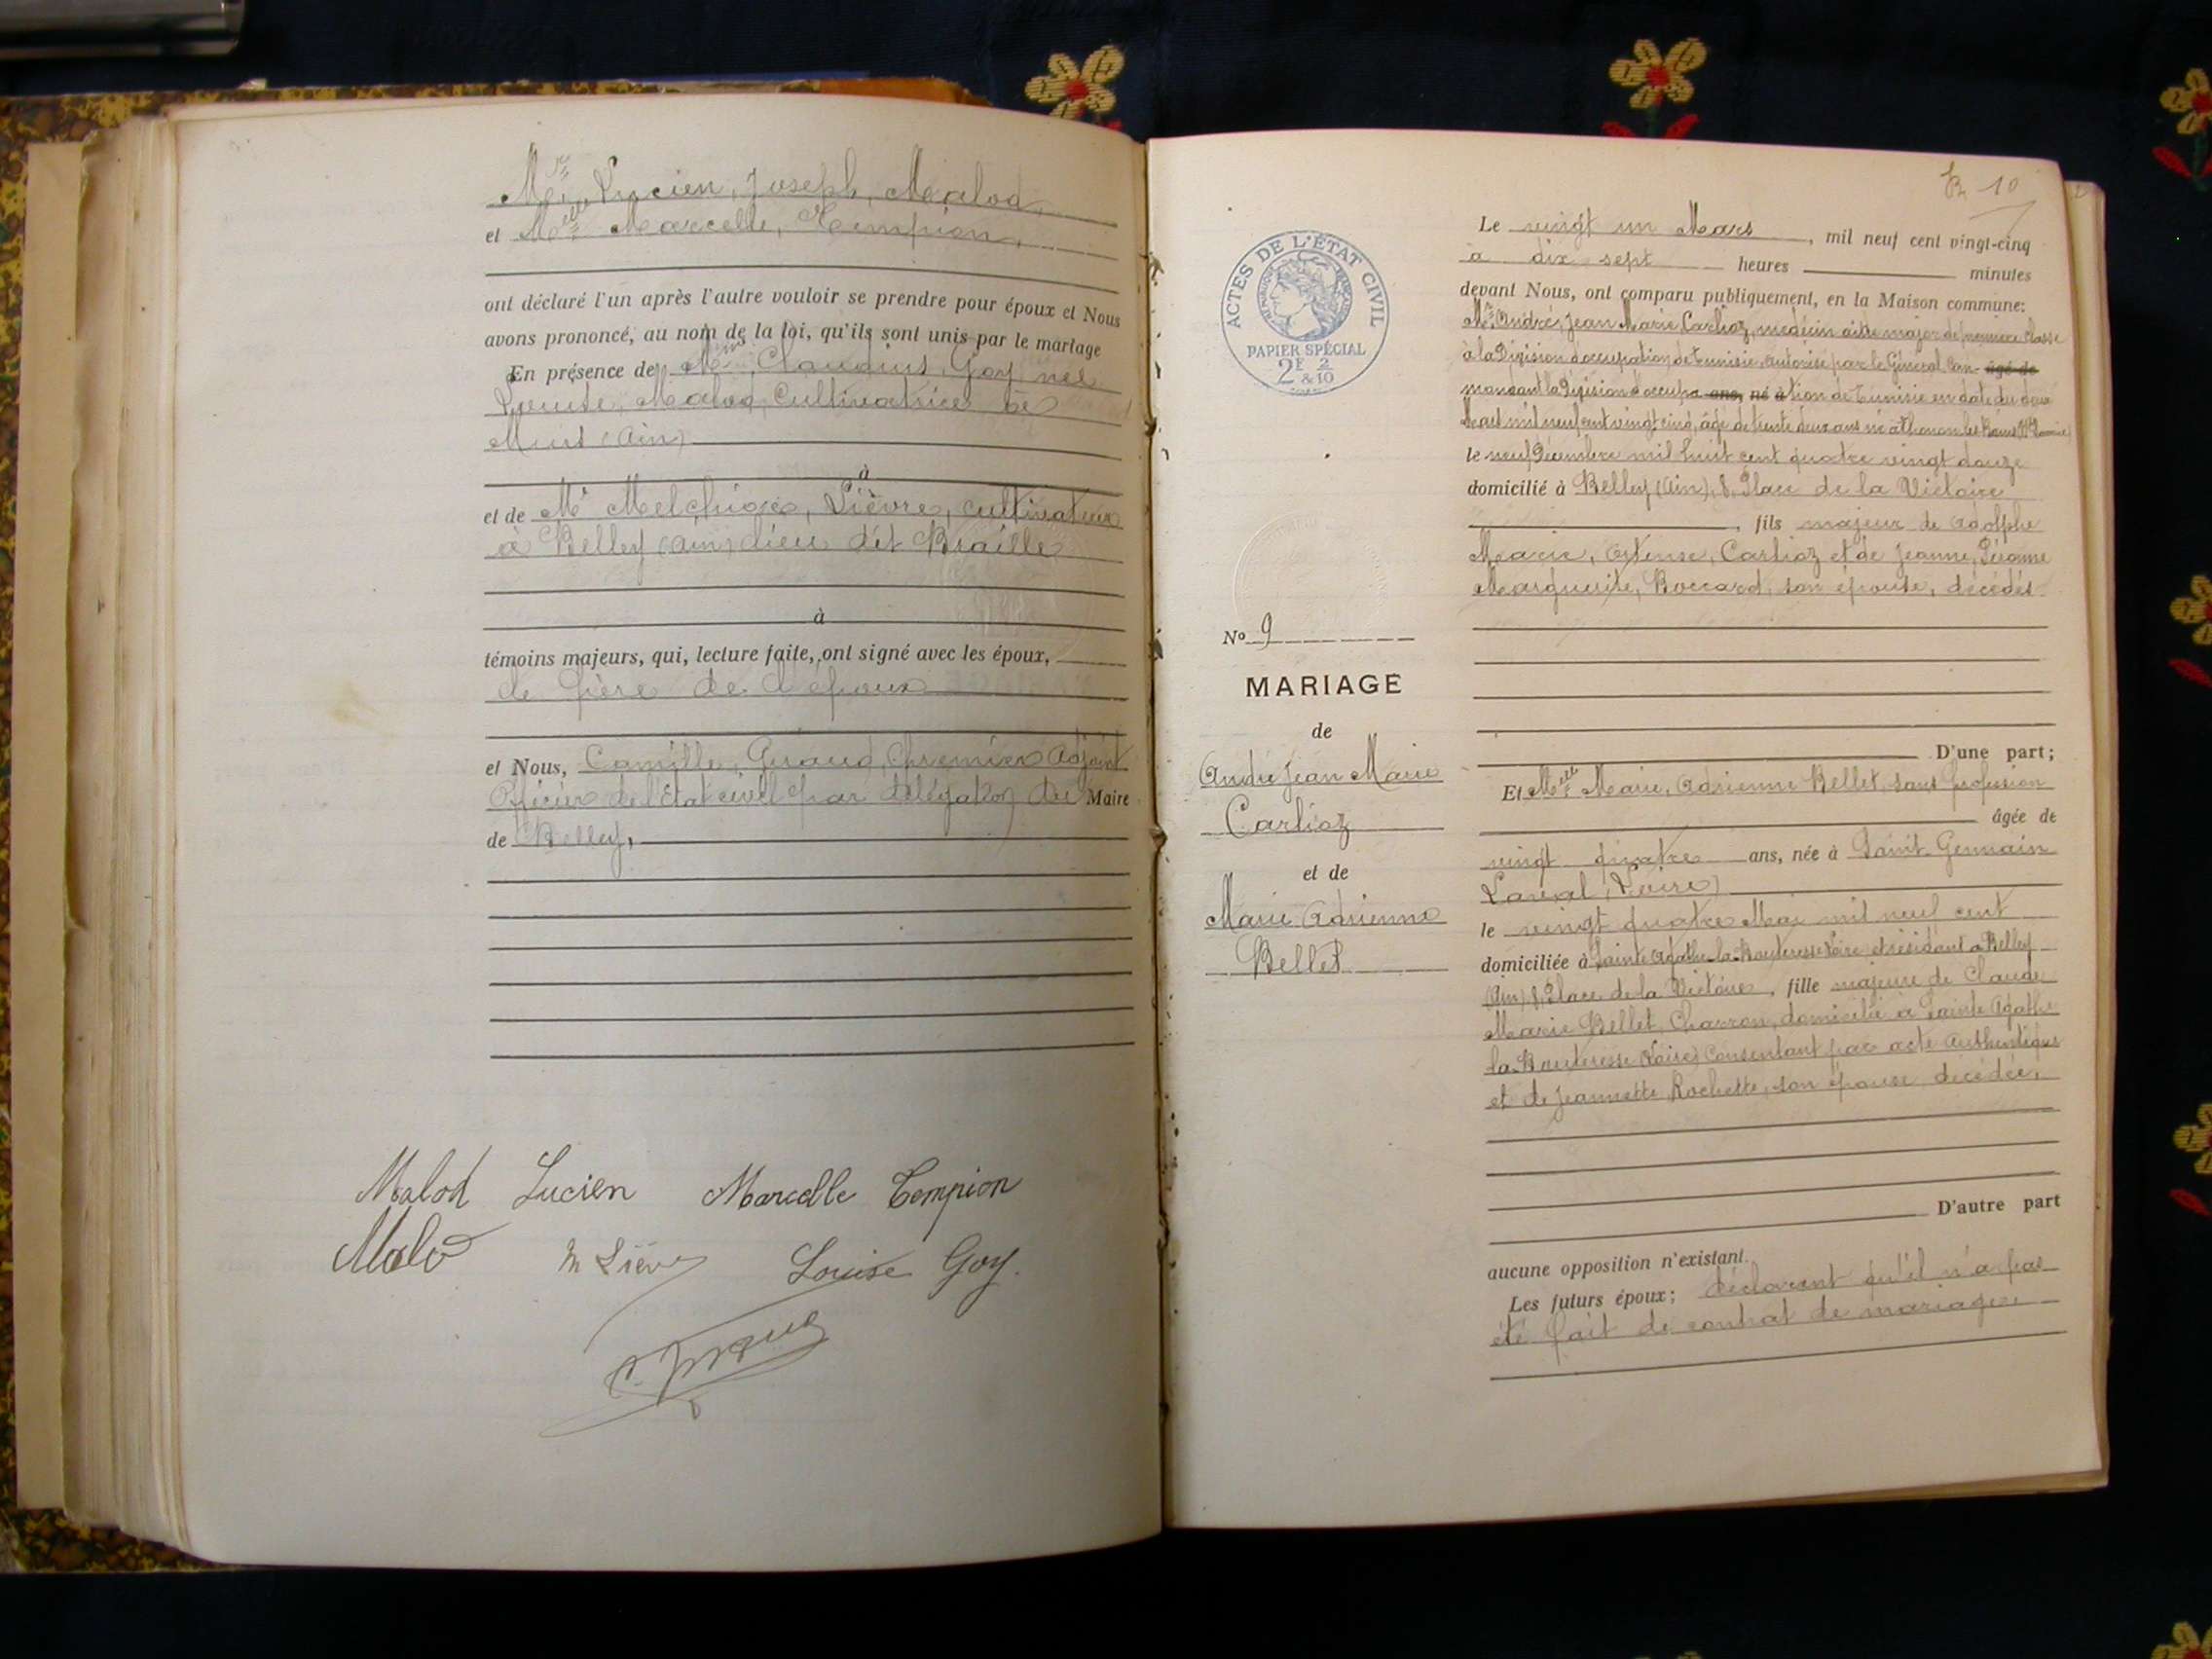 Mr. Lucien, Joseph, Malod,
et Melle Marcelle, Tempion,
ont déclaré l'un après l'autre vouloir se prendre pour époux et Nous
avons prononcé, au nom de la loi, qu'ils sont unis par le mariage
En présence de Mme Claudius Goy née
Louise, Malod, Cultivatrice de
(Ain)
à
et de Mr Melchior, Lièvre, cultivateur
à Belley (Ain) lieu dit Braille
à
témoins majeurs, qui, lecture faite, ont signé avec les époux,
le père de l'époux
et Nous, Camille, Giraud, Premier Adjoint
Officier de l'Etat civil par délégation du Maire
de Belley,
Malod Lucien Marcelle Tempion
Malod M Lièvre Louise Goy.
R 10
ACTES DE L'ÉTAT CIVIL
RÉPUBLIQUE FRANÇAISE
PAPIER SPÉCIAL
2F & 2/10
No 9
MARIAGE
de
André Jean Marie
Carlioz
et de
Marie Adrienne
Bellet
Le vingt un Mars, mil neuf cent vingt-cinq
à dix sept heures minutes
devant Nous, ont comparu publiquement, en la Maison commune:
Mr. André, Jean Marie, Carlioz, médecin aide major de première classe
à la Division d'occupation de Tunisie, autorisé par le Général Com- âgé de
mandant la Division d'occupa- ans, né à tion de Tunisie en date du douze
Mars mil neuf cent vingt cinq, âgé de trente deux ans né à Thonon les Bains (Hte Savoie)
le neuf Décembre mil huit cent quatre vingt douze
domicilié à Belley (Ain), 8, Place de la Victoire
, fils majeur de Adolphe
Marie, Carlioz et de Jeanne,
Marguerite, Boccard, son épouse, décédés
D'une part;
Et Melle Marie, Adrienne Bellet, sans profession
âgée de
vingt quatre ans, née à Saint Germain
Laval (Loire)
le vingt quatre Mai mil neuf cent
domiciliée à Sainte Agathe-la-Bouteresse Loire et résidant à Belley
(Ain) 8, Place de la Victoire, fille majeure de Claude
Marie Bellet, Charron, domicilié à Sainte Agathe
la Bouteresse (Loire) Consentant par acte authentique
et de Jeannette Rochette, son épouse décédée,
D'autre part
aucune opposition n'existant.
Les futurs époux; déclarent qu'il n'a pas
été fait de contrat de mariage